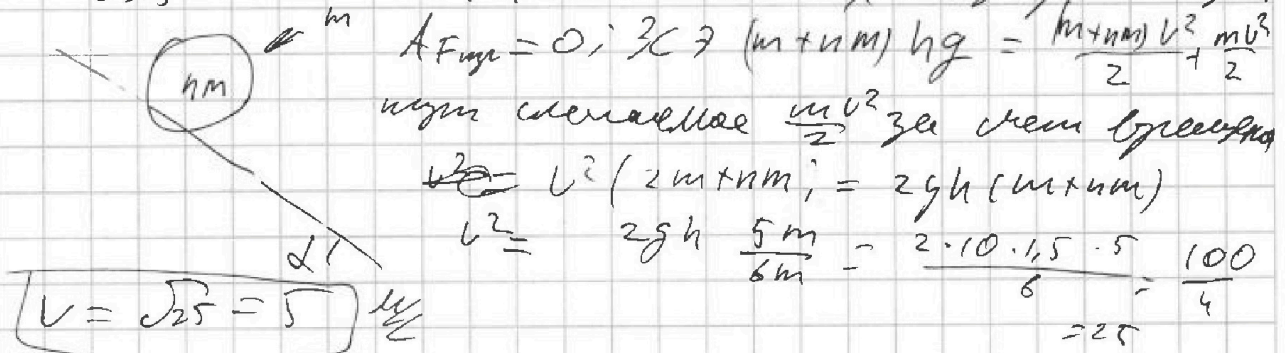 m
nm
A Fтр = 0; ЗСЭ (m+nm) hg = (m+nm) v²/2 + mv²/2
слагаемое mv²/2 за счет вращения
v² (2m+nm) = 2gh (m+nm)
v² = 2gh 5m/6m = 2·10·1,5·5/6 = 100/4
= 25
α
v = √25 = 5 м/с